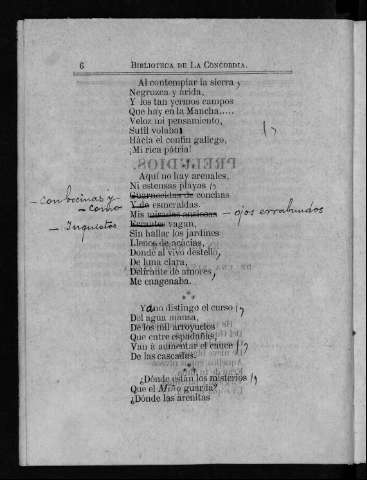 6 BIBLIOTECA DE LA CONCORDIA.
Al contemplar la sierra,
Negrozca y árida,
Y los tan yermos campos
Que hay en la Mancha.....
Veloz mi pensamiento,
Sutil volaba
Hácia el confin gallego,
¡Mi rica pátria!
PRELUDIOS.
Aquí no hay arenales,
Ni estensas playas
Guarnecidas de conchas
Y de esmeraldas.
Mis miradas ansiosas
Errantes vagan,
Sin hallar los jardines
Llenos de acácias,
Donde al vivo destello,
De luna clara,
Delirante de amores,
Me enagenaba.
Ya no distingo el curso
Del agua mansa,
De los mil arroyuelos
Que entre espadañas,
Van á aumentar el cauce
De las cascadas.
¿Dónde están los misterios
Que el Miño guarda?
¿Dónde las arenitas
– con bocinas y
– como
– Inquietos
– ojos errabundos